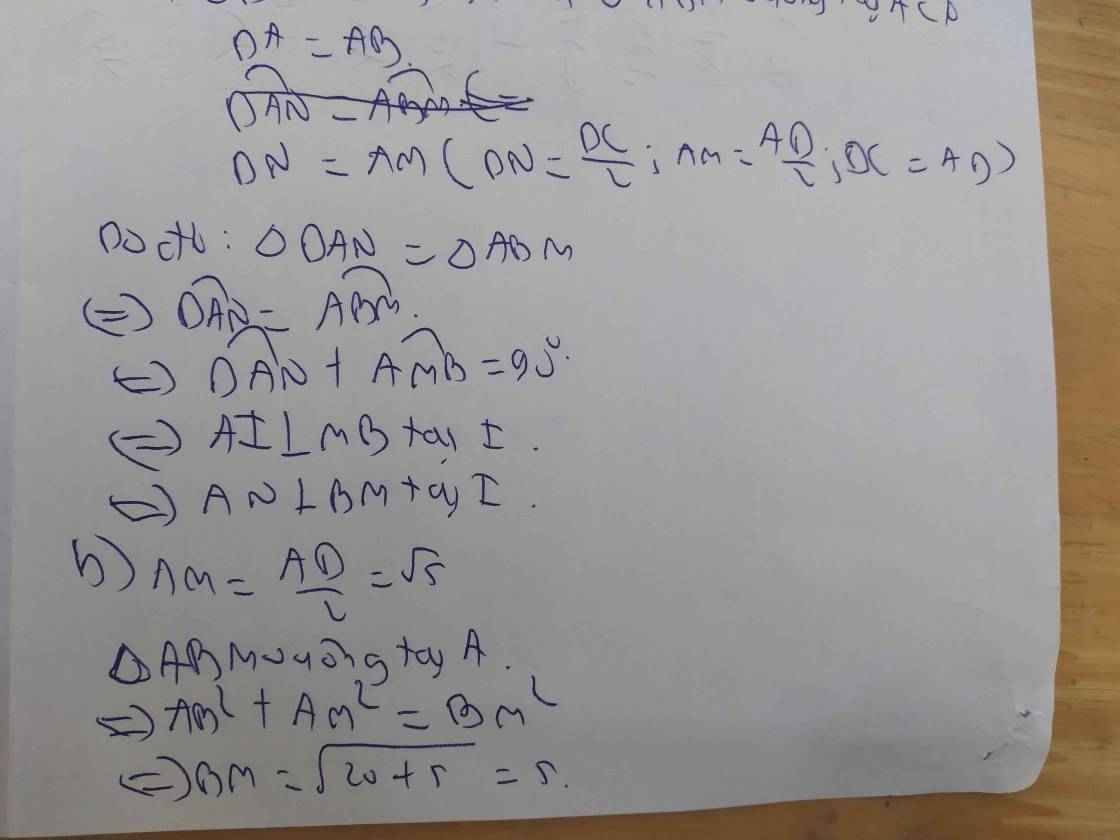 DA = AB.
DN = AM ( DN = DC/2 ; AM = AD/2 ; DC = AD )
Do đó : Δ DAN = Δ ABM
(=) DAN = ABM.
(=) DAN + AMB = 90°.
(=) AI ⊥ MB tại I .
(=) AN ⊥ BM tại I .
b) AM = AD/2 = √5
Δ ABM vuông tại A .
=) AB² + AM² = BM²
(=) BM = √20 + 5 = 5.